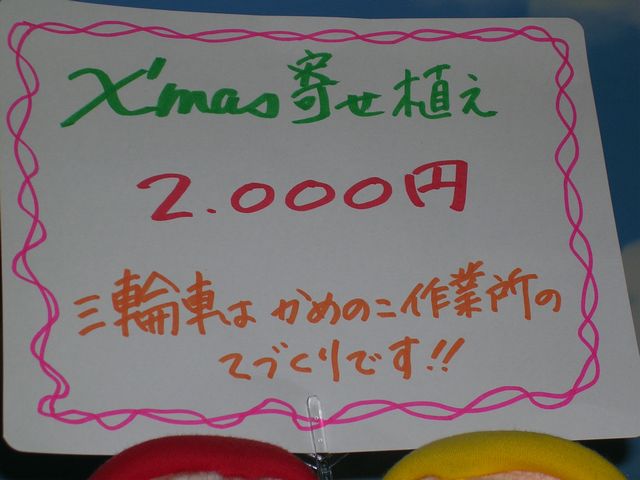 X'mas寄せ植え
2.000円
三輪車は かめのこ作業所の
てづくりです!!